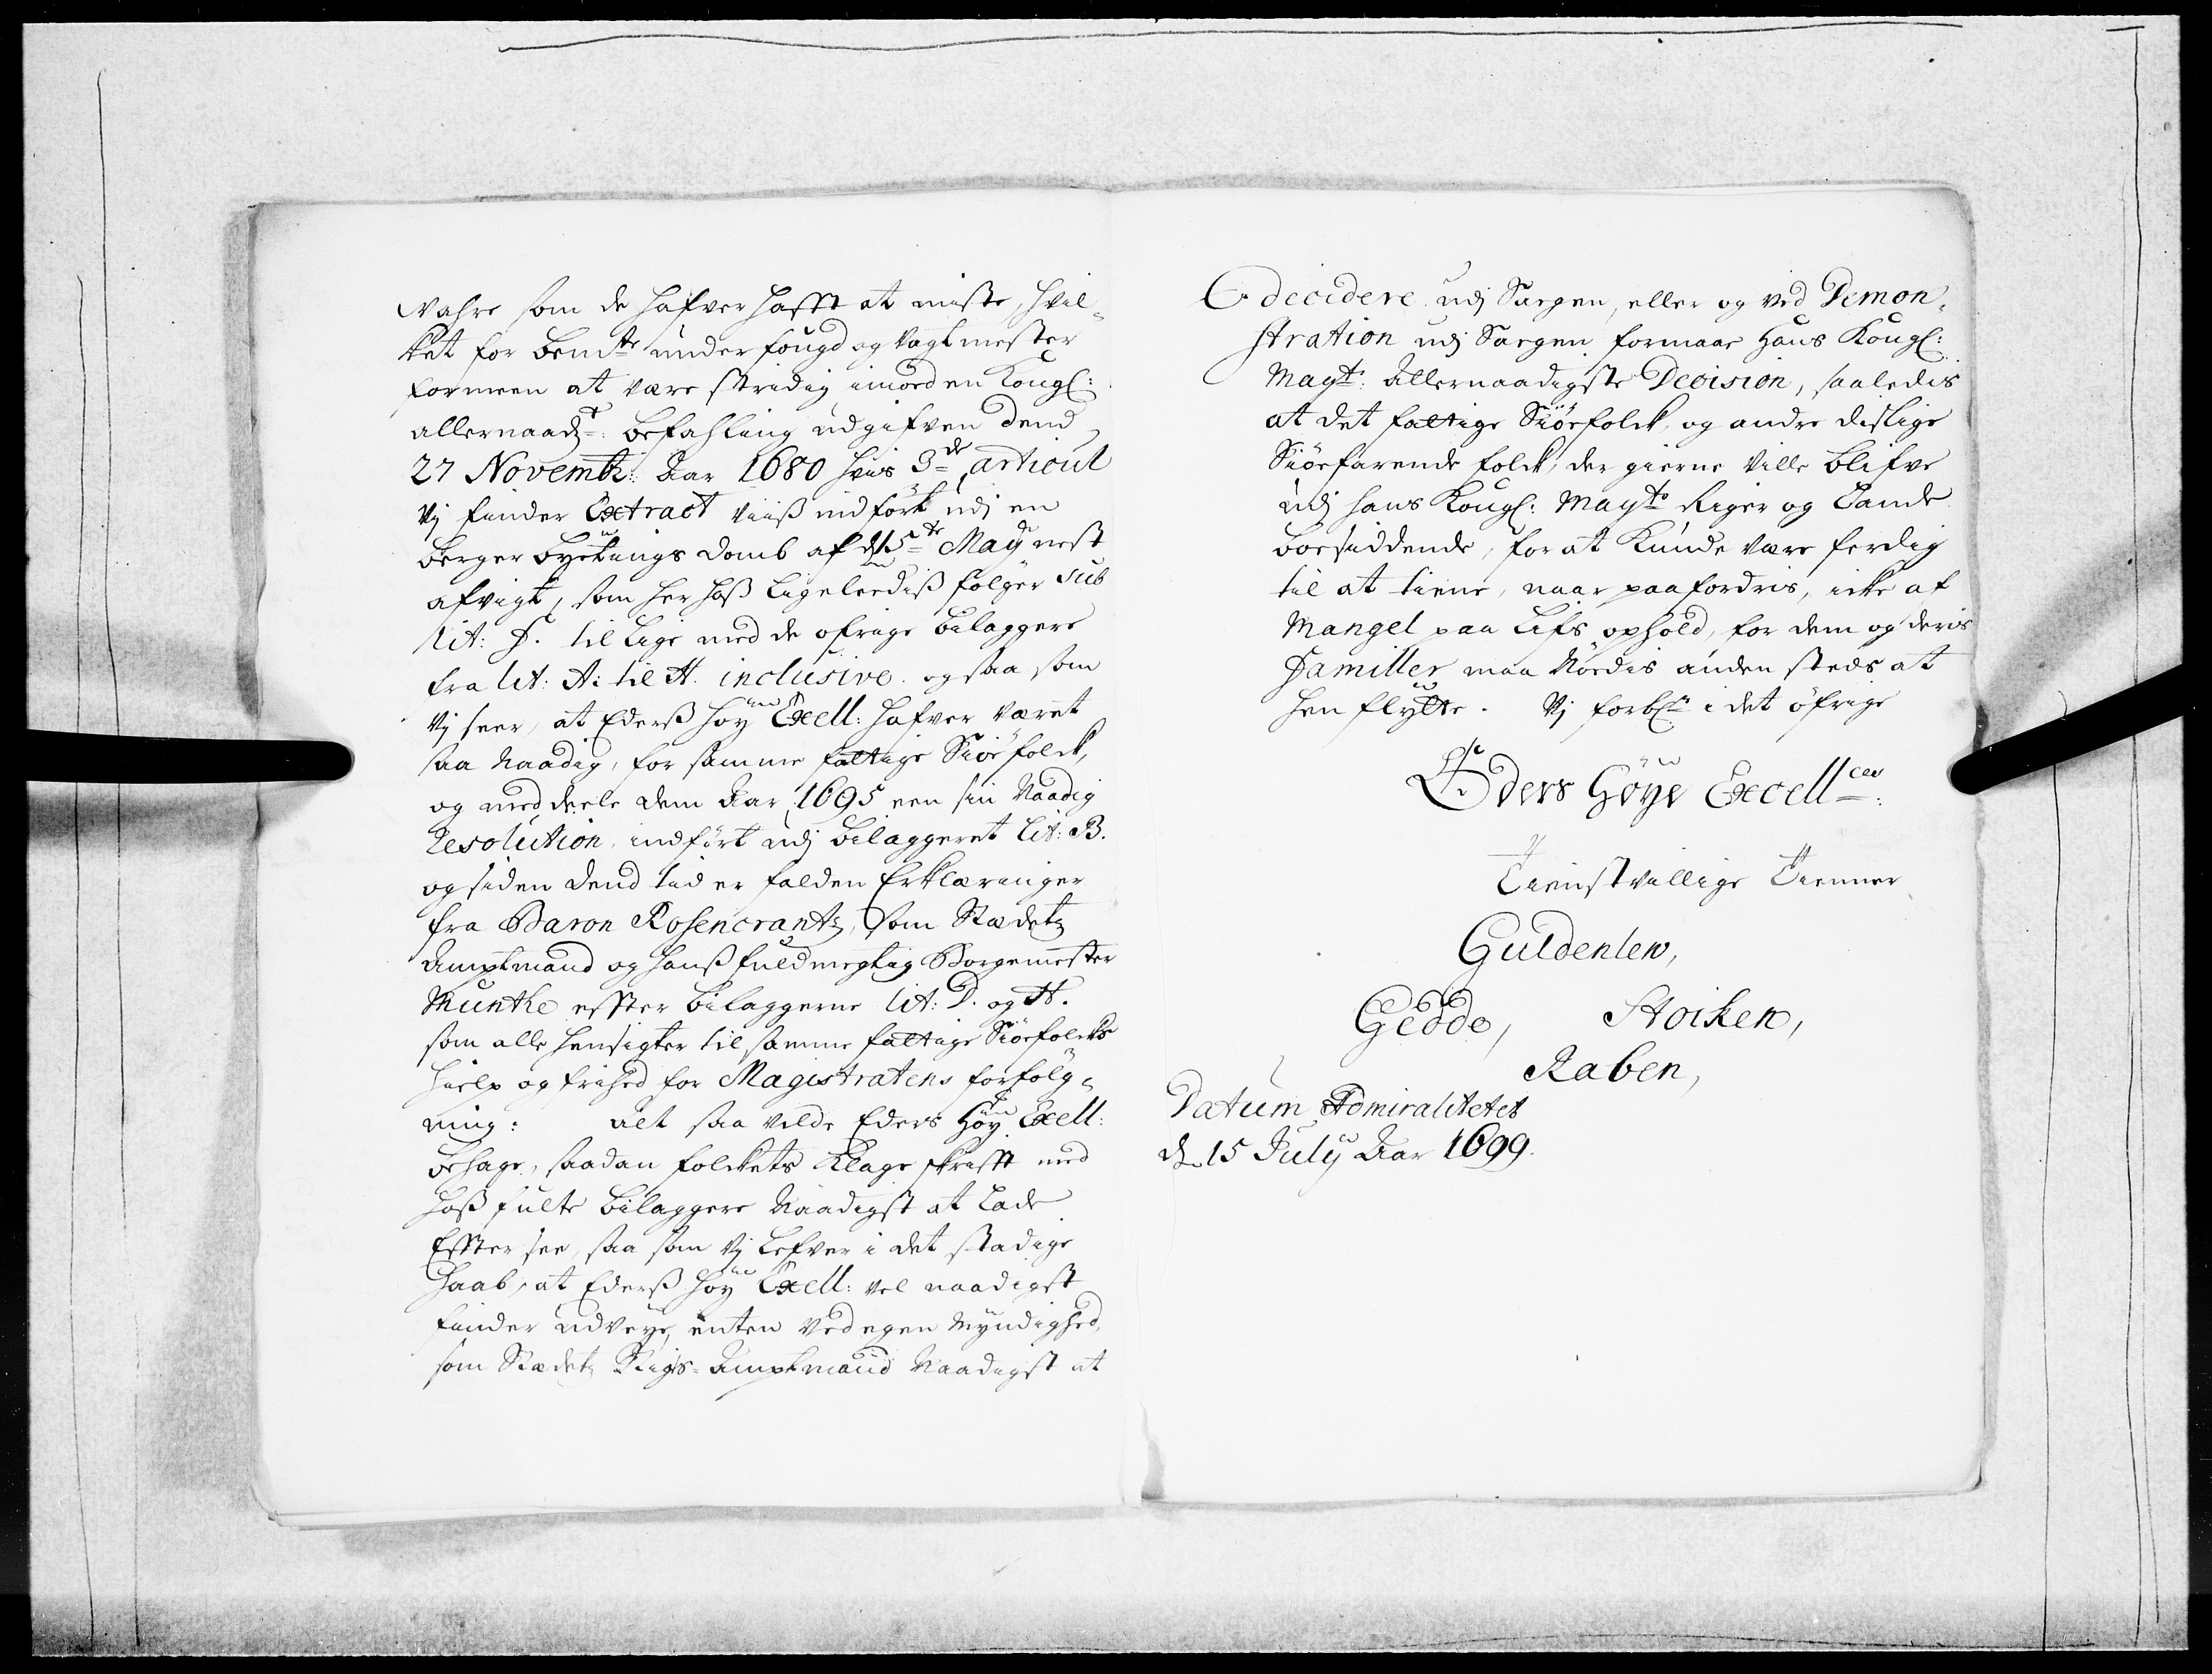 Vahre som de hafver hafft at miste, hvil¬
ket for bemte underfougd og Vagtmester
formeen at være stridig imod en Kongl:
allernaadt: befahling udgifven dend
27 Novembr: Aar 1680 hvis 3de articul
Vj finder Extract viiss indført udj en
Berger byetings domb af d 15de May nest
afvigt, som her hoss ligeleediss følger sub
lit: F. til lige med de øfrige bilaggere
fra lit: A: til H. inclusive. og saa som
Vj seer, at Ederss høy Exell: hafver været
saa Naadig, for samme fattige Siøefolck,
og meddeele dem Aar 1695 een sin Naadig
Resolution, indført udj bilaggeret Lit: B.
og siden dend tid er falden Erklæringer
fra Baron Rosencrantz, som Stædetz
Amptmand og hanss fuldmegtig Borgemester
Munthe effter bilaggerne lit: D. og H.
som alle hensigter til samme fattige Siøefolckes
hielp og frihed for Magistratens forfølg¬
ning: Alt saa vilde Eders Høy Exell:
behage, saadan folckets Klage skrifft med
hoss fulte bilaggere Naadigst at lade
Effter see, saa som Vj lefver i det stadige
haab, at Ederss høy Exell: vel naadigst
finder udveye, enten ved egen Myndighed,
som Stædetz Stigts-Amptmand Naadigst at
decidere udj Sagen, eller og ved Demon¬
stration udj Sagen formaar Hans Kongl:
Mayts: Allernaadigste Decision, saaledis
at det fattige Siøefolck, og andre dislige
Siøefarende folck, der gierne Ville blifve
udj hans Kongl: Mayts Riger og Lande
boesiddende, for at Kunde være ferdig
til at tiene, naar paafordris, icke af
Mangel paa Lifs ophold, for dem og deris
Familler maa Nødis anden steds at
hen flytte. Vj forble i det øfrige
Eders Høye Excellces:
Tienstvillige Tienner
Guldenlew,
Gedde, Stöcken,
Raben,
Datum Admiralitetet
d. 15 July Aar 1699.